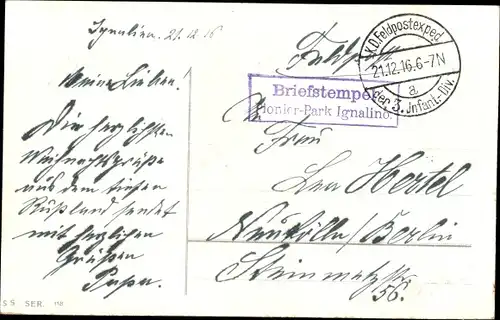 Ignalina. 21.12.16
Meine Lieben!
Die herzlichsten
Weihnachtsgrüße
aus dem tiefen
Rußland sendet
mit herzlichen
Grüßen
Papa.
S S SER. 110
Feldpost
K.D. Feldpostexped.
21.12.16. 6-7N
a
der 3. Infant.-Div.
Briefstempel
Pionier-Park Ignalino.
Frau
Hertel
Neukölln/Berlin
Steinmetzstr.
56.